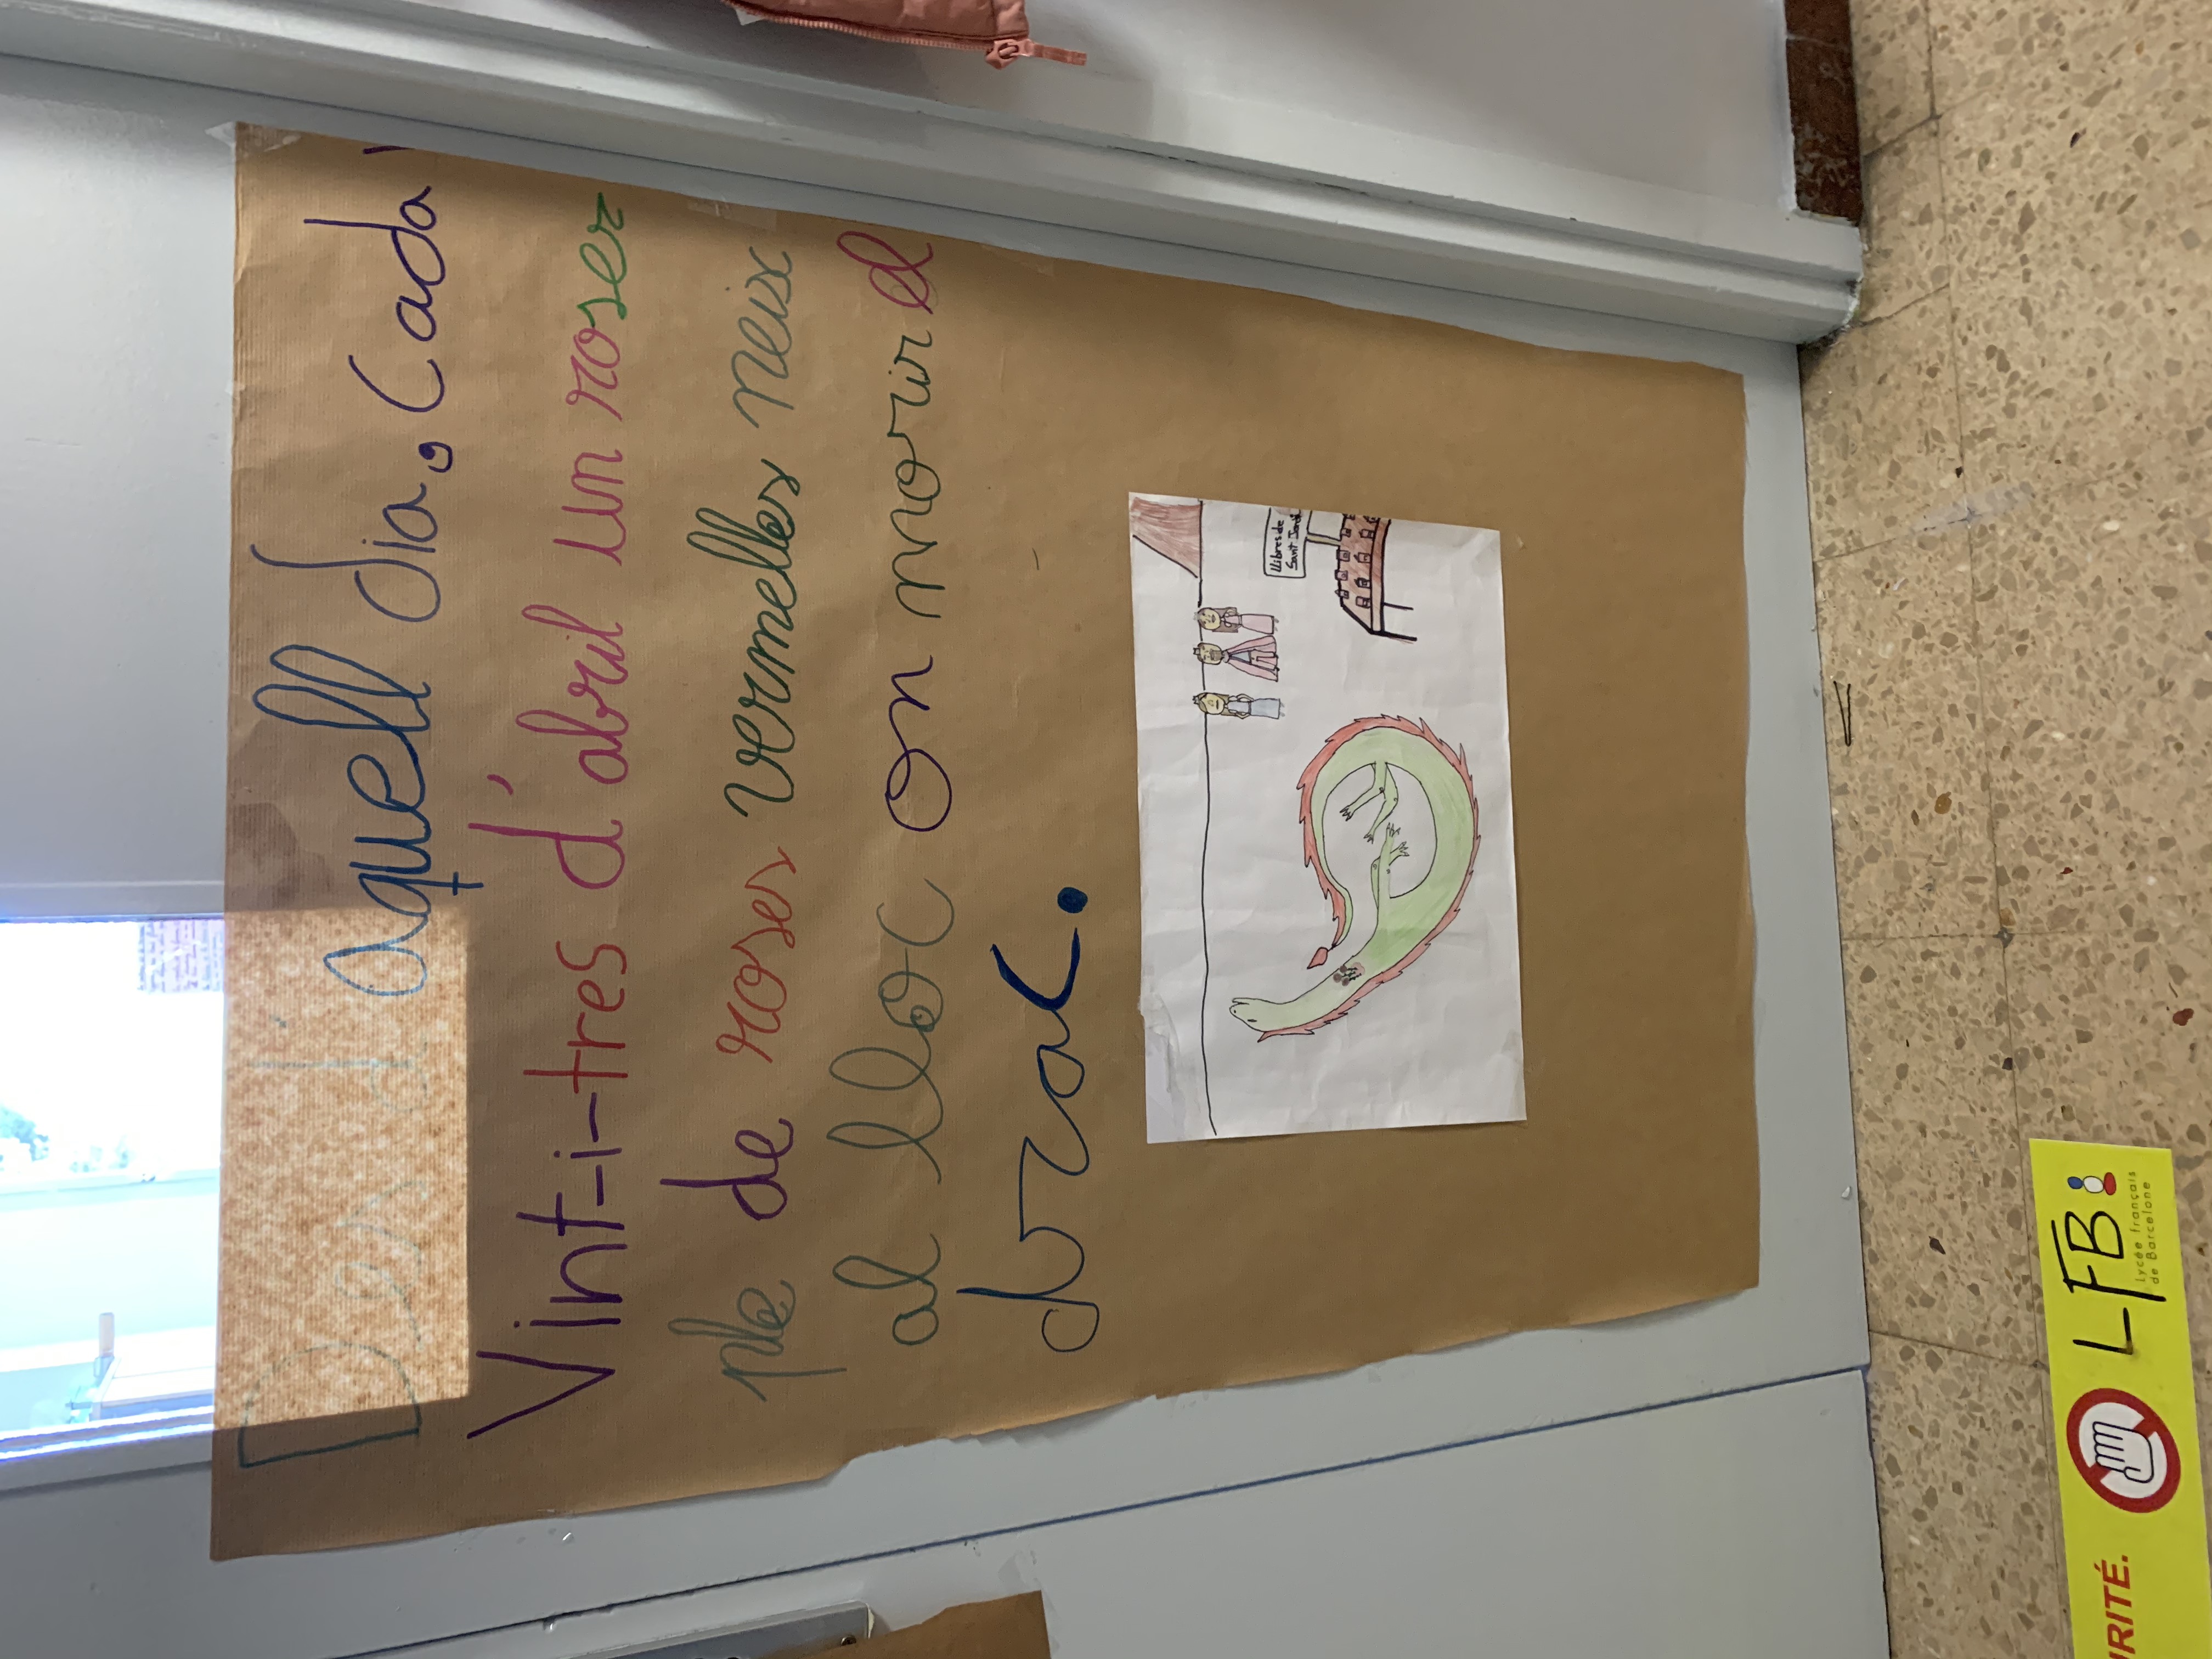 Des d'aquell dia, Cada
Vint-i-tres d'abril un roser
ple de roses vermelles neix
al lloc on morir el
drac.
Llibres de
Sant Jordi
LFB
lycée français
de Barcelone
URITÉ.